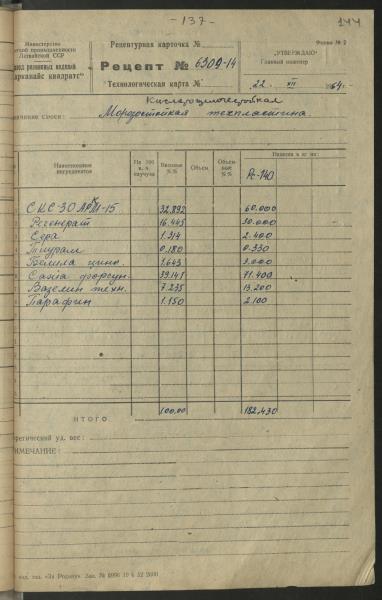 - 137 -
144
Министерство
Рецептурная карточка №
Форма № 2
Латвийской ССР
завод резиновых изделий
Рецепт № 6309-14
„УТВЕРЖДАЮ"
Главный инженер
"арканайс квадратс"
Технологическая карта №
22. XII 64 г.
Кислотощелочестойкая
Морозостойкая техпластина.
Наименование ингредиентов
На 100 в. ч. каучука
Весовые %%
Объем
Объемные %%
Навеска в кг на:
Рс-140
СКС-30 АРКМ-15 32.892 60.000
Регенерат 16.445 30.000
Сера 1.314 2.400
Тиурам 0.180 0.330
Белила цинк. 1.643 3.000
Сажа форсун. 39.145 71.400
Вазелин техн. 7.235 13.200
Парафин 1.150 2.100
ИТОГО 100,00 182.430
ретический уд. вес:
ИМЕЧАНИЕ: